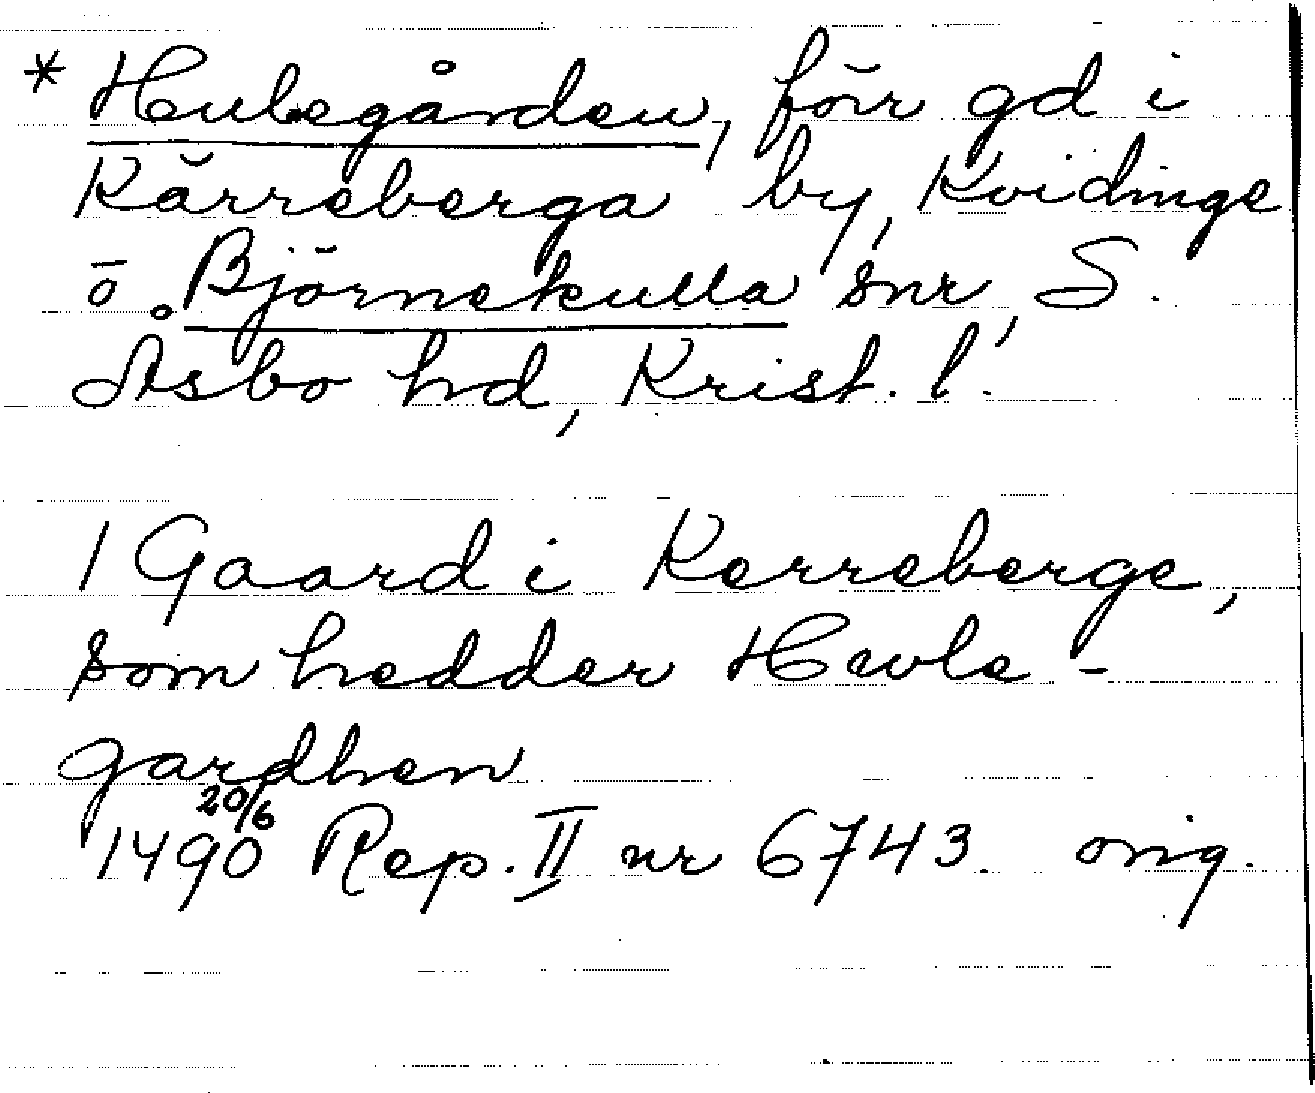 * Hulegården, förr gd i
Kärreberga by, Kvidinge
o Björnekulla snr, S.
Åsbo hd, Krist. l.
1 Gaard i Kerreberge,
som hedder Hwle-
gardhen
1490 20/6 Rep. II nr 6743. orig.